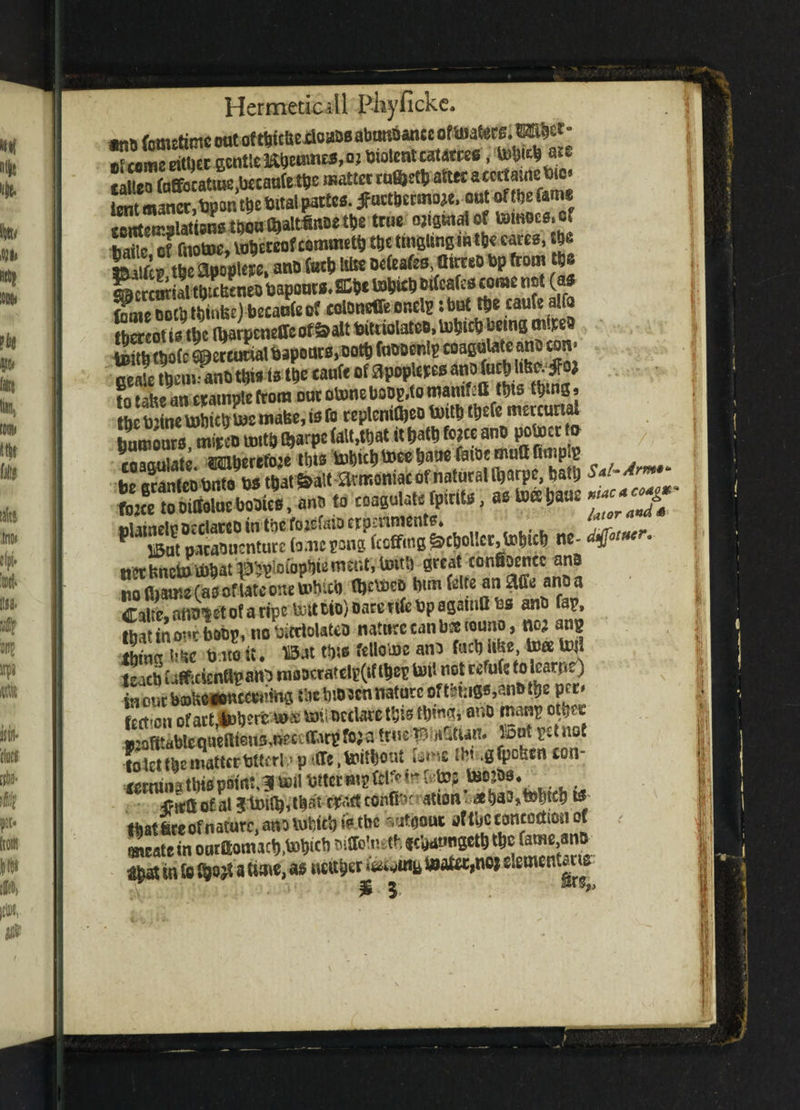 Hermeticall Phyſicke.
and ſometime out of thicke clouds abundance of waters. Wher-
of come either gentle Rheumes, or violent catarres, which are
called ſuffocatiue, becauſe the matter ruſheth after a certaine vio-
lent maner, vpon the vital partes. Furthermore, out of the ſame
contemplations thou ſhalt finde the true originall of windes, of
haile, of ſnowe, whereof commeth the tingling in the eares, the
Palſey, the Apoplexe, and ſuch like deſeaſes, ſtirred vp from the
Mercurial thickened vapours. The which diſeaſes come not (as
ſome doth thinke) becauſe of coldneſſe onely: but the cauſe alſo
thereof is the ſharpeneſſe of Salt vitriolated, which being mixed
with thoſe Mercurial vapours, doth ſuddenly coagulate and con-
geale them: and this is the cauſe of Apoplexes and ſuch like. For
to take an example from our owne body, to manifeſt this thing,
the vrine which we make, is ſo repleniſhed with theſe mercurial
humours, mixed with ſharpe ſalt, that it hath force and power to
coagulate. Wherefore this which wee haue ſaide muſt ſimply
be granted vnto vs that Salt-Armoniac of natural ſharpe, hath Sal-Armo-
force to diſſolue bodies, and to coagulate ſpirits, as wee haue niac a coagu-
plainely declared in the foreſaid experiments. lator and a
But paraduenture ſome yong ſcoffing Scholler, which ne- diſſoluer.
uer knew what Phyloſophie meant, with great confidence and
no ſhame (as of late one which ſhewed him ſelfe an Aſſe and a
Calfe, and yet of a ripe witt tio) dare riſe vp againſt vs and ſay,
that in our body, no vitriolated nature can bee found, nor any
thing like vnto it. But this fellowe and ſuch like, wee wyll
teach ſufficiently and moderately (if they wil not refuſe to learne)
in our booke concerning the hidden nature of things, and the per-
fection of art, where wee wil declare this thing, and many other
profitable queſtions, neceſſary for a true Phiſitian. But yet not
to let the matter vtterly paſſe, without ſome thing ſpoken con-
cerning this point, I will vtter my ſelfe in few words.
Firſt of al I wiſh, that exact conſideration be had, which is
that fire of nature, and which is the authour of the concoction of
meate in our ſtomach, which diſſolueth & chaungeth the ſame, and
that in ſo ſhort a time, as neither water, nor elementarie
X 3 fire,